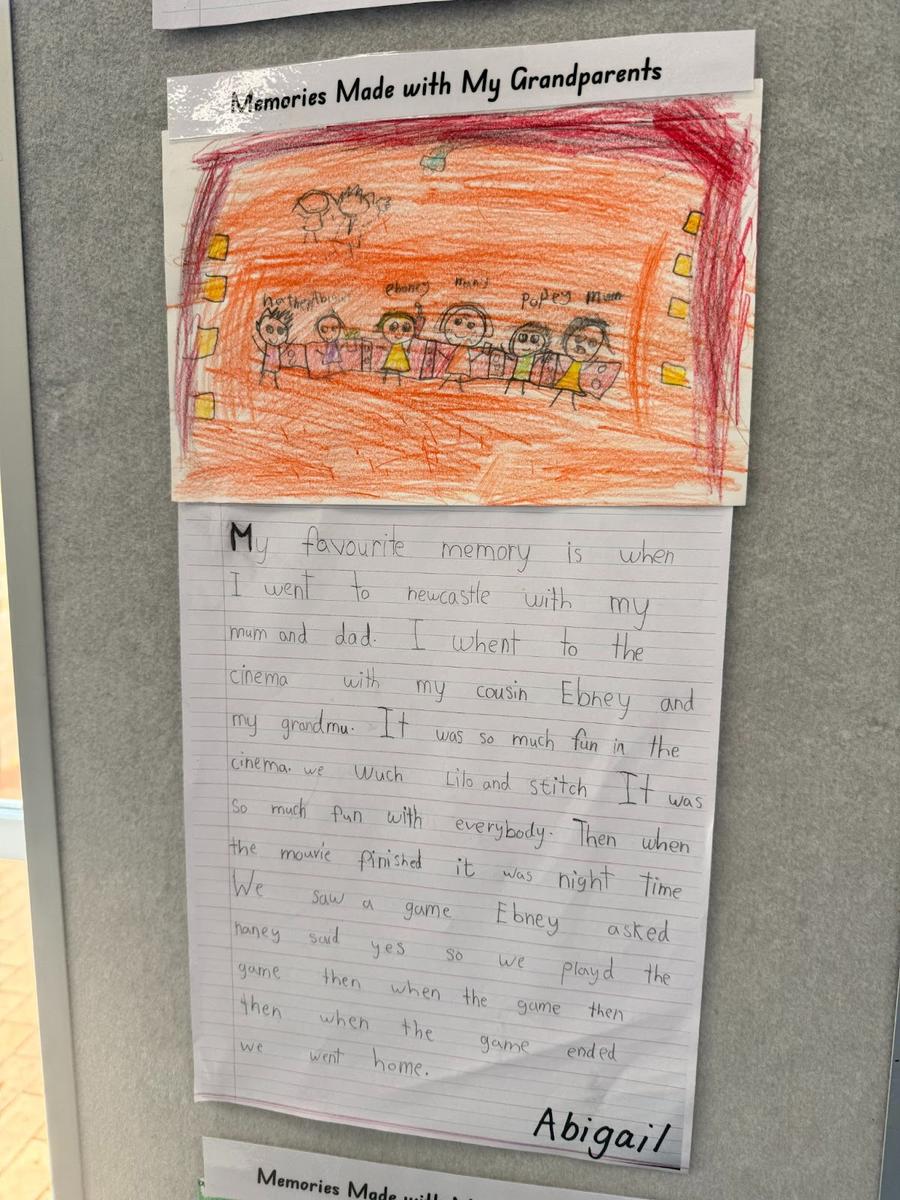 Memories Made with My Grandparents
eboney
Popey mum
My favourite memory is when
I went to newcastle with my
mum and dad. I whent to the
cinema with my cousin Ebney and
my grandmu. It was so much fun in the
cinema. we wuch Lilo and stitch It was
so much fun with everybody. Then when
the mouvie finished it was night time
We saw a game Ebney asked
naney said yes so we playd the
game then when the game then
then when the game ended
we went home.
Abigail
Memories Made with